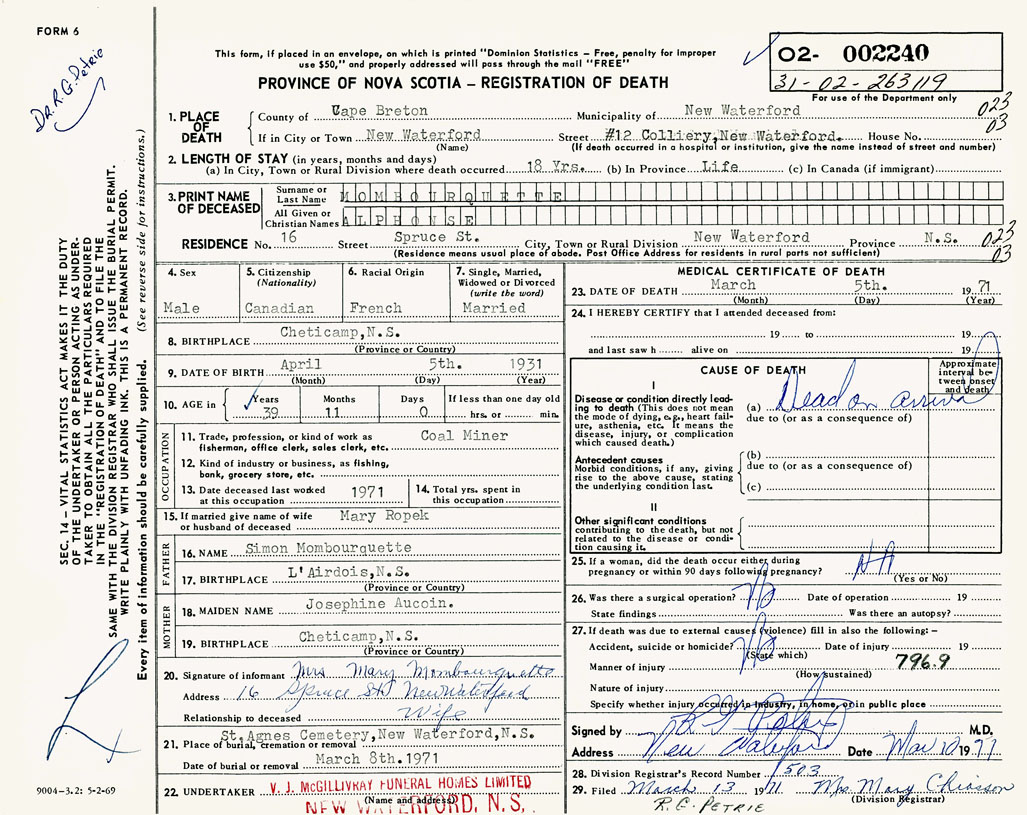 FORM 6
Dr. R.G. Petrie
This form, if placed in an envelope, on which is printed "Dominion Statistics – Free, penalty for improper
use $50," and properly addressed will pass through the mail "FREE"
PROVINCE OF NOVA SCOTIA – REGISTRATION OF DEATH
02- 002240
31-02-263119
For use of the Department only
023
03
1. PLACE OF DEATH
County of Cape Breton Municipality of New Waterford
If in City or Town New Waterford Street #12 Colliery,New Waterford. House No.
(Name) (If death occurred in a hospital or institution, give the name instead of street and number)
2. LENGTH OF STAY (in years, months and days)
(a) In City, Town or Rural Division where death occurred 18 Yrs. (b) In Province Life (c) In Canada (if immigrant)
3. PRINT NAME OF DECEASED
Surname or Last Name MOMBOURQUETTE
All Given or Christian Names ALPHONSE
RESIDENCE No. 16 Street Spruce St. City, Town or Rural Division New Waterford Province N.S.
(Residence means usual place of abode. Post Office Address for residents in rural parts not sufficient)
023
03
4. Sex
Male
5. Citizenship
(Nationality)
Canadian
6. Racial Origin
French
7. Single, Married,
Widowed or Divorced
(write the word)
Married
8. BIRTHPLACE Cheticamp,N.S.
(Province or Country)
9. DATE OF BIRTH April 5th. 1931
(Month) (Day) (Year)
10. AGE in Years 39 Months 11 Days 0 If less than one day old
hrs. or min.
OCCUPATION
11. Trade, profession, or kind of work as Coal Miner
fisherman, office clerk, sales clerk, etc.
12. Kind of industry or business, as fishing,
bank, grocery store, etc.
13. Date deceased last worked
at this occupation 1971
14. Total yrs. spent in
this occupation
15. If married give name of wife
or husband of deceased Mary Ropek
FATHER
16. NAME Simon Mombourquette
17. BIRTHPLACE L'Airdois,N.S.
(Province or Country)
MOTHER
18. MAIDEN NAME Josephine Aucoin.
19. BIRTHPLACE Cheticamp,N.S.
(Province or Country)
20. Signature of informant Mrs Mary Mombourquette
Address 16 Spruce St New Waterford
Relationship to deceased Wife
St.Agnes Cemetery,New Waterford,N.S.
21. Place of burial, cremation or removal
Date of burial or removal March 8th.1971
22. UNDERTAKER V. J. McGILLIVRAY FUNERAL HOMES LIMITED
(Name and address)
NEW WATERFORD, N. S.
MEDICAL CERTIFICATE OF DEATH
23. DATE OF DEATH March 5th. 1971
(Month) (Day) (Year)
24. I HEREBY CERTIFY that I attended deceased from:
19 to 19
and last saw h alive on 19
CAUSE OF DEATH
Approximate
interval be-
tween onset
and death
I
Disease or condition directly lead-
ing to death (This does not
mean the mode of dying, e.g., heart fail-
ure, asthenia, etc. It means the
disease, injury, or complication
which caused death.)
(a) Dead on arrival
due to (or as a consequence of)
Antecedent causes
Morbid conditions, if any, giving
rise to the above cause, stating
the underlying condition last.
(b)
due to (or as a consequence of)
(c)
II
Other significant conditions
contributing to the death, but not
related to the disease or condi-
tion causing it.
25. If a woman, did the death occur either during
pregnancy or within 90 days following pregnancy? NA
(Yes or No)
26. Was there a surgical operation? No Date of operation 19
State findings Was there an autopsy?
27. If death was due to external causes (violence) fill in also the following: –
Accident, suicide or homicide? No Date of injury 19
(State which)
Manner of injury 796.9
(How sustained)
Nature of injury
Specify whether injury occurred in industry, in home, or in public place
Signed by R G Petrie M.D.
Address New Waterford Date Mar 10 1971
28. Division Registrar's Record Number 1503
29. Filed March 13 1971 Mrs Mary Chiasson
(Division Registrar)
R.G. PETRIE
SEC. 14 – VITAL STATISTICS ACT MAKES IT THE DUTY
OF THE UNDERTAKER OR PERSON ACTING AS UNDER-
TAKER TO OBTAIN ALL THE PARTICULARS REQUIRED
IN THE "REGISTRATION OF DEATH" AND TO FILE THE
SAME WITH THE DIVISION REGISTRAR WHO SHALL ISSUE THE BURIAL PERMIT.
WRITE PLAINLY WITH UNFADING INK. THIS IS A PERMANENT RECORD.
Every item of information should be carefully supplied. (See reverse side for instructions.)
9004-3.2: 5-2-69